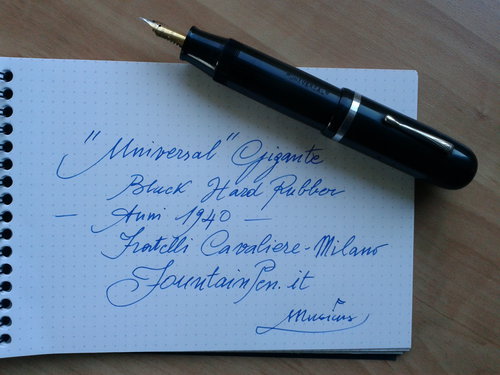 "Universal" Gigante
Black Hard Rubber
— Anni 1940 —
Fratelli Cavaliere - Milano
FountainPen.it